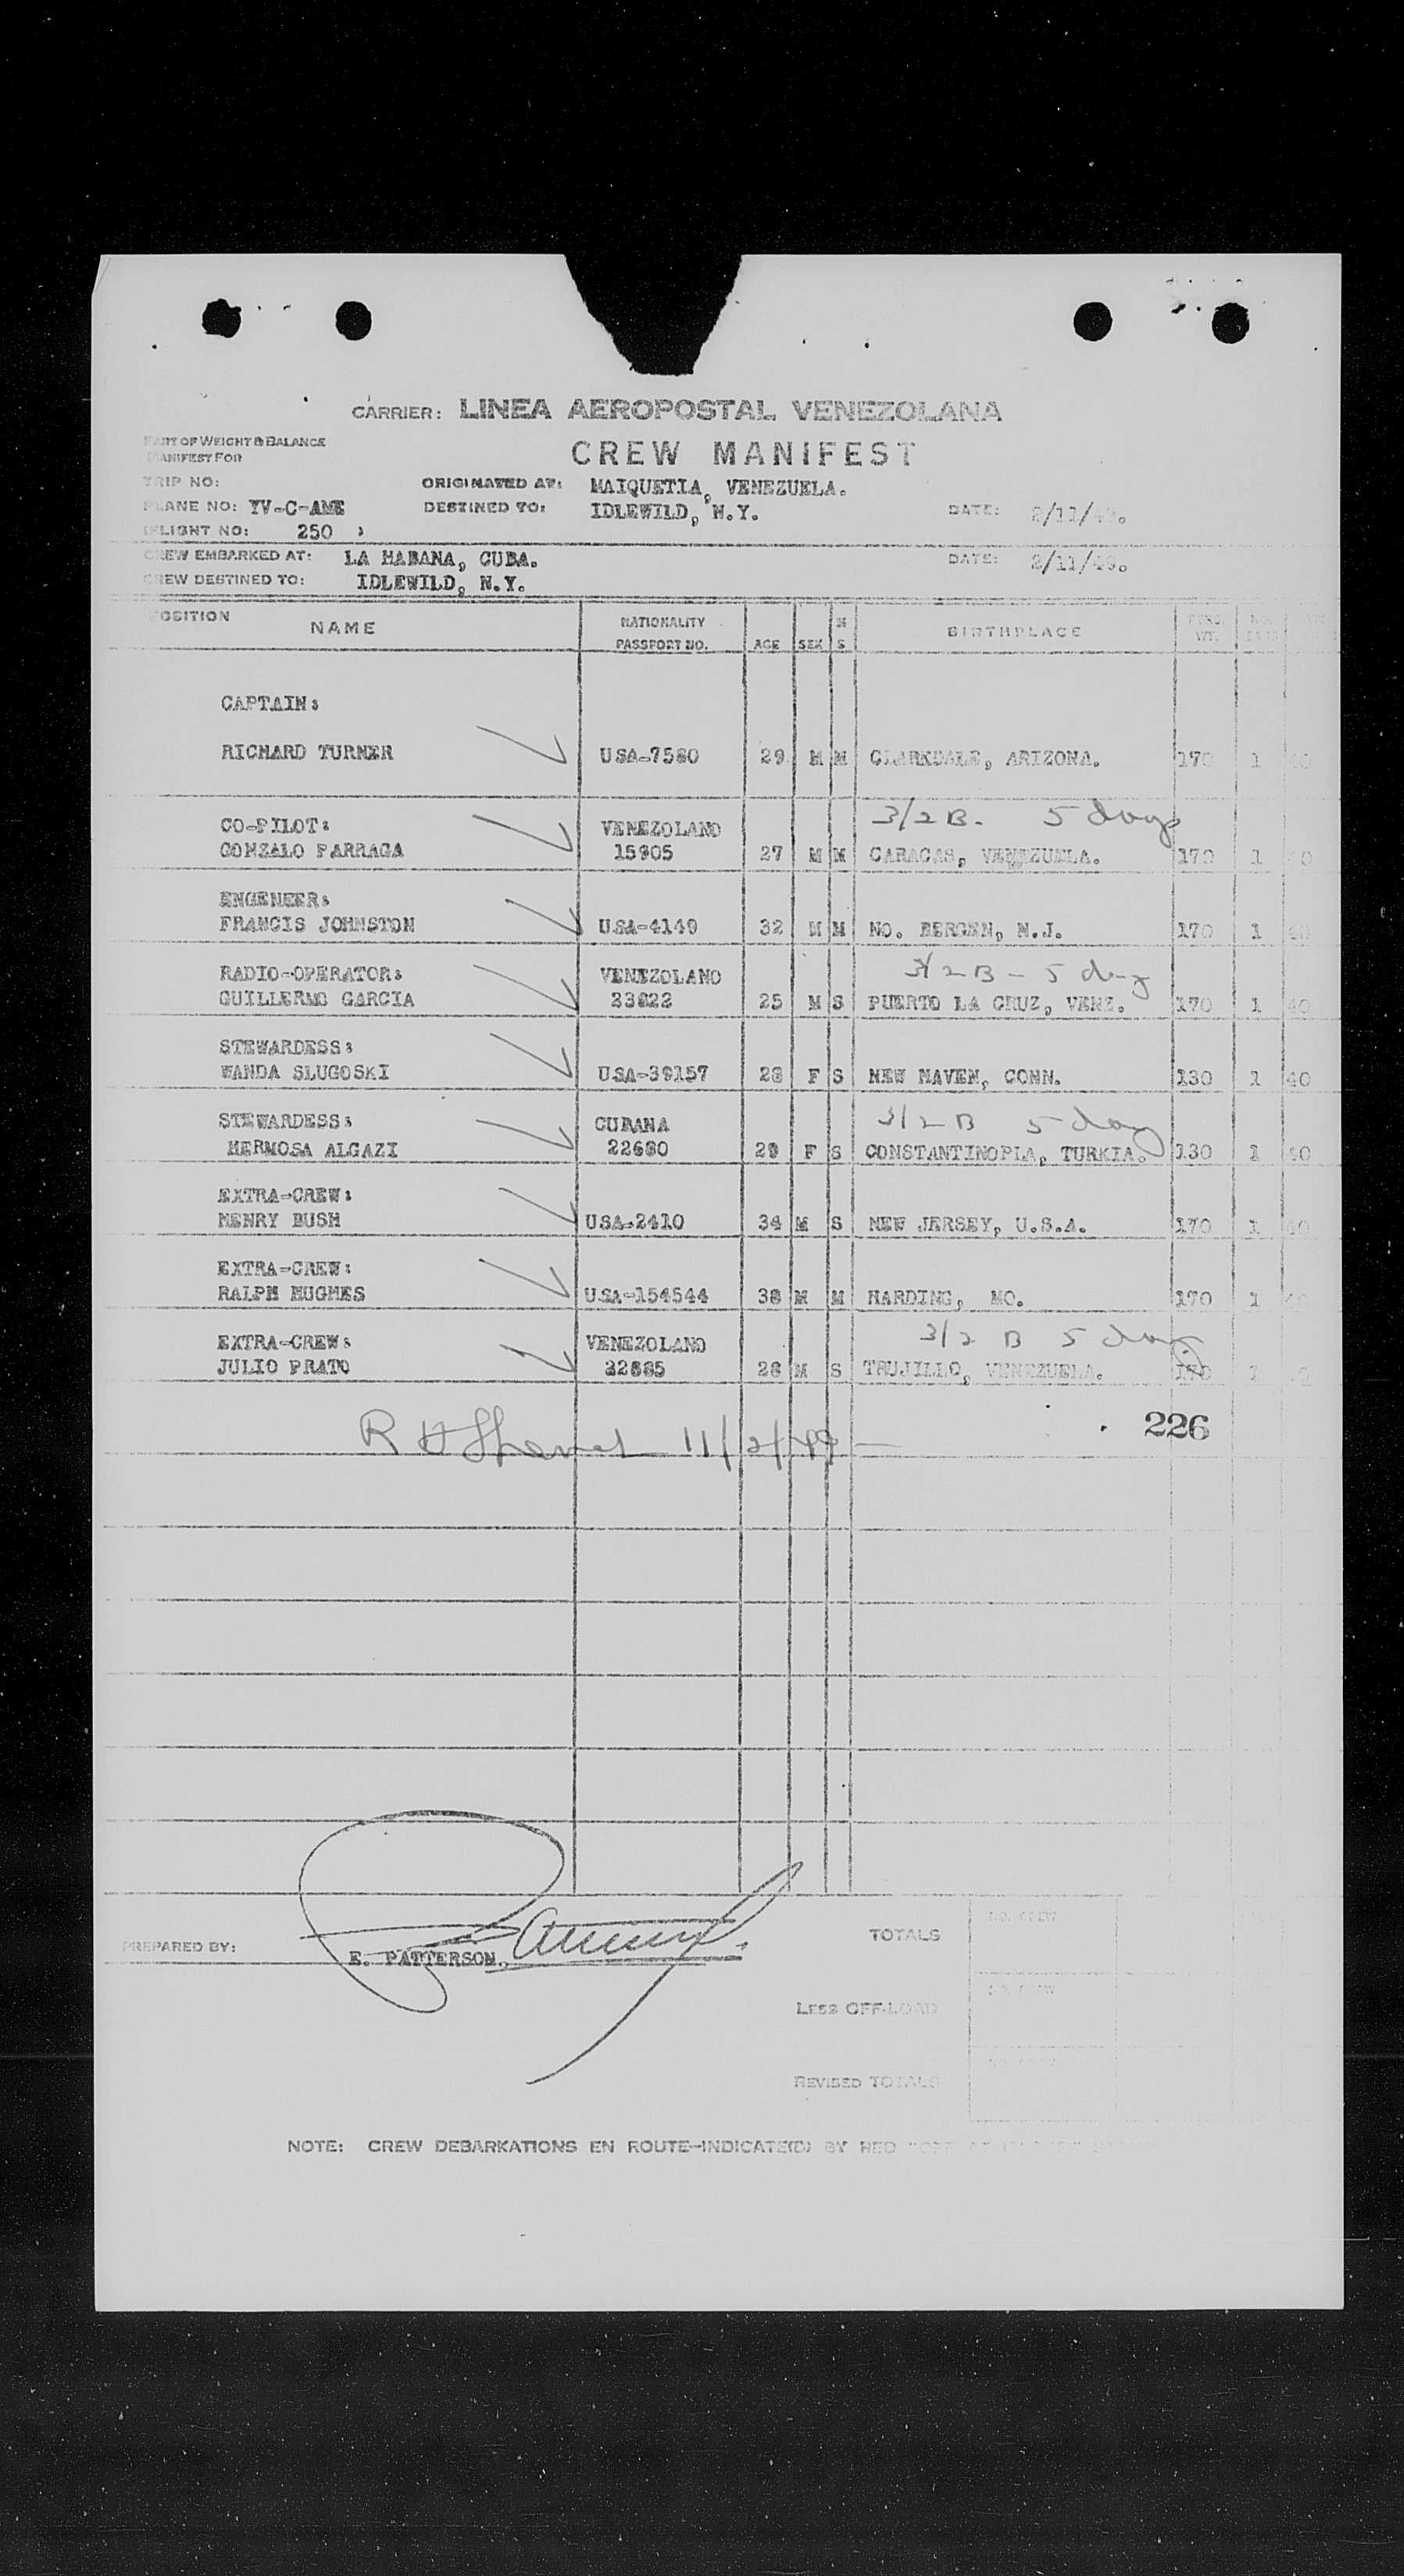 CARRIER: LINEA AEROPOSTAL VENEZOLANA
PART OF WEIGHT & BALANCE
MANIFEST FOR
CREW MANIFEST
TRIP NO: ORIGINATED AT: MAIQUETIA, VENEZUELA.
PLANE NO: YV-C-AME DESTINED TO: IDLEWILD, N.Y. DATE: 2/11/49.
FLIGHT NO: 250
CREW EMBARKED AT: LA HABANA, CUBA. DATE: 2/11/49.
CREW DESTINED TO: IDLEWILD, N.Y.
POSITION NAME NATIONALITY PASSPORT NO. AGE SEX M S BIRTHPLACE
CAPTAIN:
RICHARD TURNER USA-7580 29 M M CLARKDALE, ARIZONA. 170 1 40
CO-PILOT: VENEZOLANO 3/2 B. 5 days
GONZALO PARRAGA 15905 27 M M CARACAS, VENEZUELA. 170 1 40
ENGENEER:
FRANCIS JOHNSTON USA-4149 32 M M NO. BERGEN, N.J. 170 1 40
RADIO-OPERATOR: VENEZOLANO 3/2 B - 5 days
GUILLERMO GARCIA 23822 25 M S PUERTO LA CRUZ, VENZ. 170 1 40
STEWARDESS:
WANDA SLUGOSKI USA-39157 28 F S NEW HAVEN, CONN. 130 1 40
STEWARDESS: CUBANA 3/2 B 5 days
HERMOSA ALGAZI 22680 29 F S CONSTANTINOPLA, TURKIA. 130 1 40
EXTRA-CREW:
HENRY BUSH USA-2410 34 M S NEW JERSEY, U.S.A. 170 1 40
EXTRA-CREW:
RALPH HUGHES USA-154544 38 M M HARDING, MO. 170 1 40
EXTRA-CREW: VENEZOLANO 3/2 B 5 days
JULIO PRATO 22885 28 M S TRUJILLO, VENEZUELA. 170 1
226
R H 11/2/49 —
PREPARED BY: E. PATTERSON.
TOTALS NO. CREW
LESS OFF-LOAD NO. CREW
REVISED TOTALS NO. CREW
NOTE: CREW DEBARKATIONS EN ROUTE-INDICATE(D) BY RED